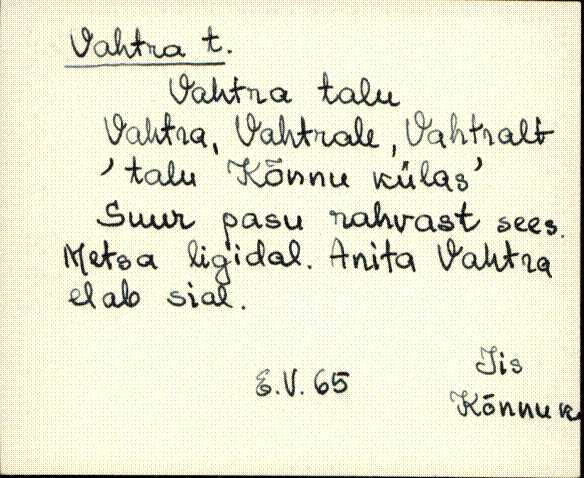 Vahtra t.
Vahtra talu
Vahtra, Vahtrale, Vahtralt
'talu Kõnnu külas'
Suur pasu rahvast sees.
Metsa ligidal. Anita Vahtra
elab sial.
E.V. 65
Jis
Kõnnu k.